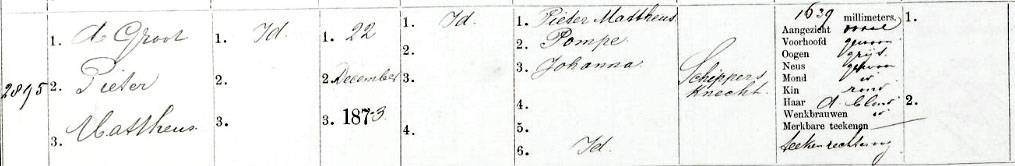 2895
1. de Groot
2. Pieter
3. Mattheus.
1. Id.
2.
3.
1. 22
2. December
3. 1873
1. Id.
2.
3.
4.
1. Pieter Mattheus
2. Pompe
3. Johanna
4.
5.
6. Id.
Schippers
Knecht.
1639 millimeters.
Aangezicht ovaal
Voorhoofd gewoon
Oogen grijs.
Neus gewoon
Mond id
Kin rond
Haar d. blond
Wenkbrauwen id
Merkbare teekenen —
1.
2.